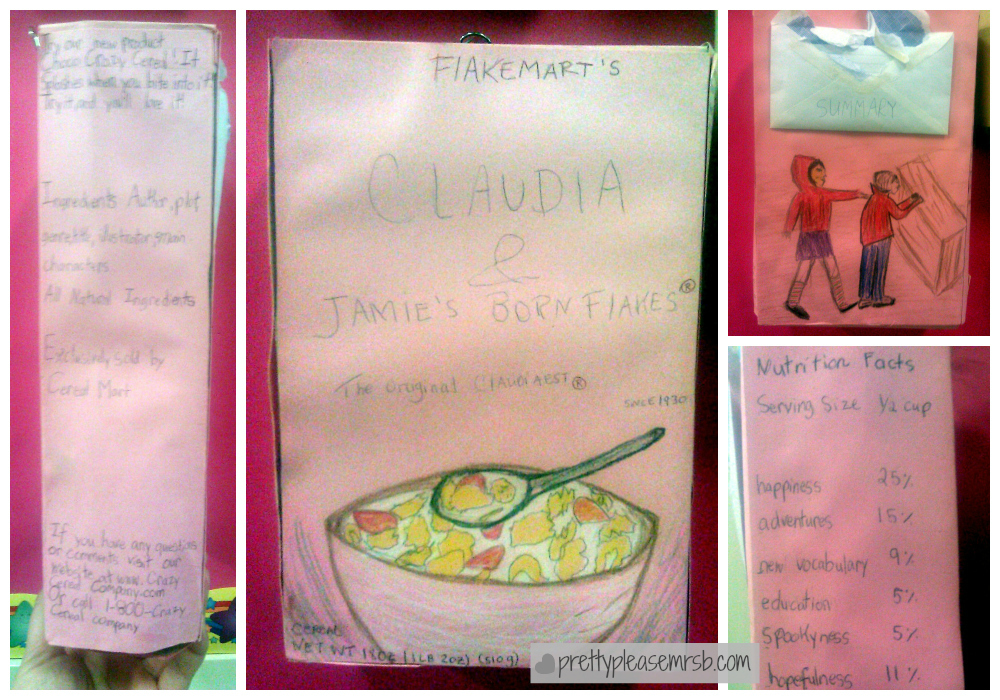 Try our new product
Choco Crazy Cereal! It
Splashes when you bite into it!
Try it, and you'll love it!
Ingredients Author, plot
genre, title, illustrator, main
characters
All Natural Ingredients
Exclusively sold by
Cereal Mart
If you have any questions
or comments visit our
website at www. Crazy
Cereal Company.com
Or call 1-800-Crazy
Cereal company
FlAKEMART'S
CLAUDIA
&
JAMIE'S BORN FlAKES®
The original ClAUDIAEST®
SINCE 1930
CEREAL
NET WT 18OZ (1LB 2OZ) (510g)
SUMMARY
Nutrition Facts
Serving Size ½ cup
happiness 25%
adventures 15%
new vocabulary 9%
education 5%
spookyness 5%
hopefulness 11%
prettypleasemrsb.com